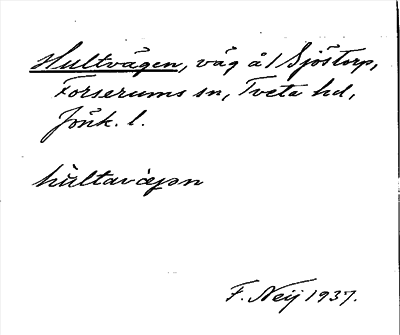 Hultvägen, väg å/ Sjöstorp,
Forserums sn, Tveta hd,
Jönk. l.
F. Neij 1937.